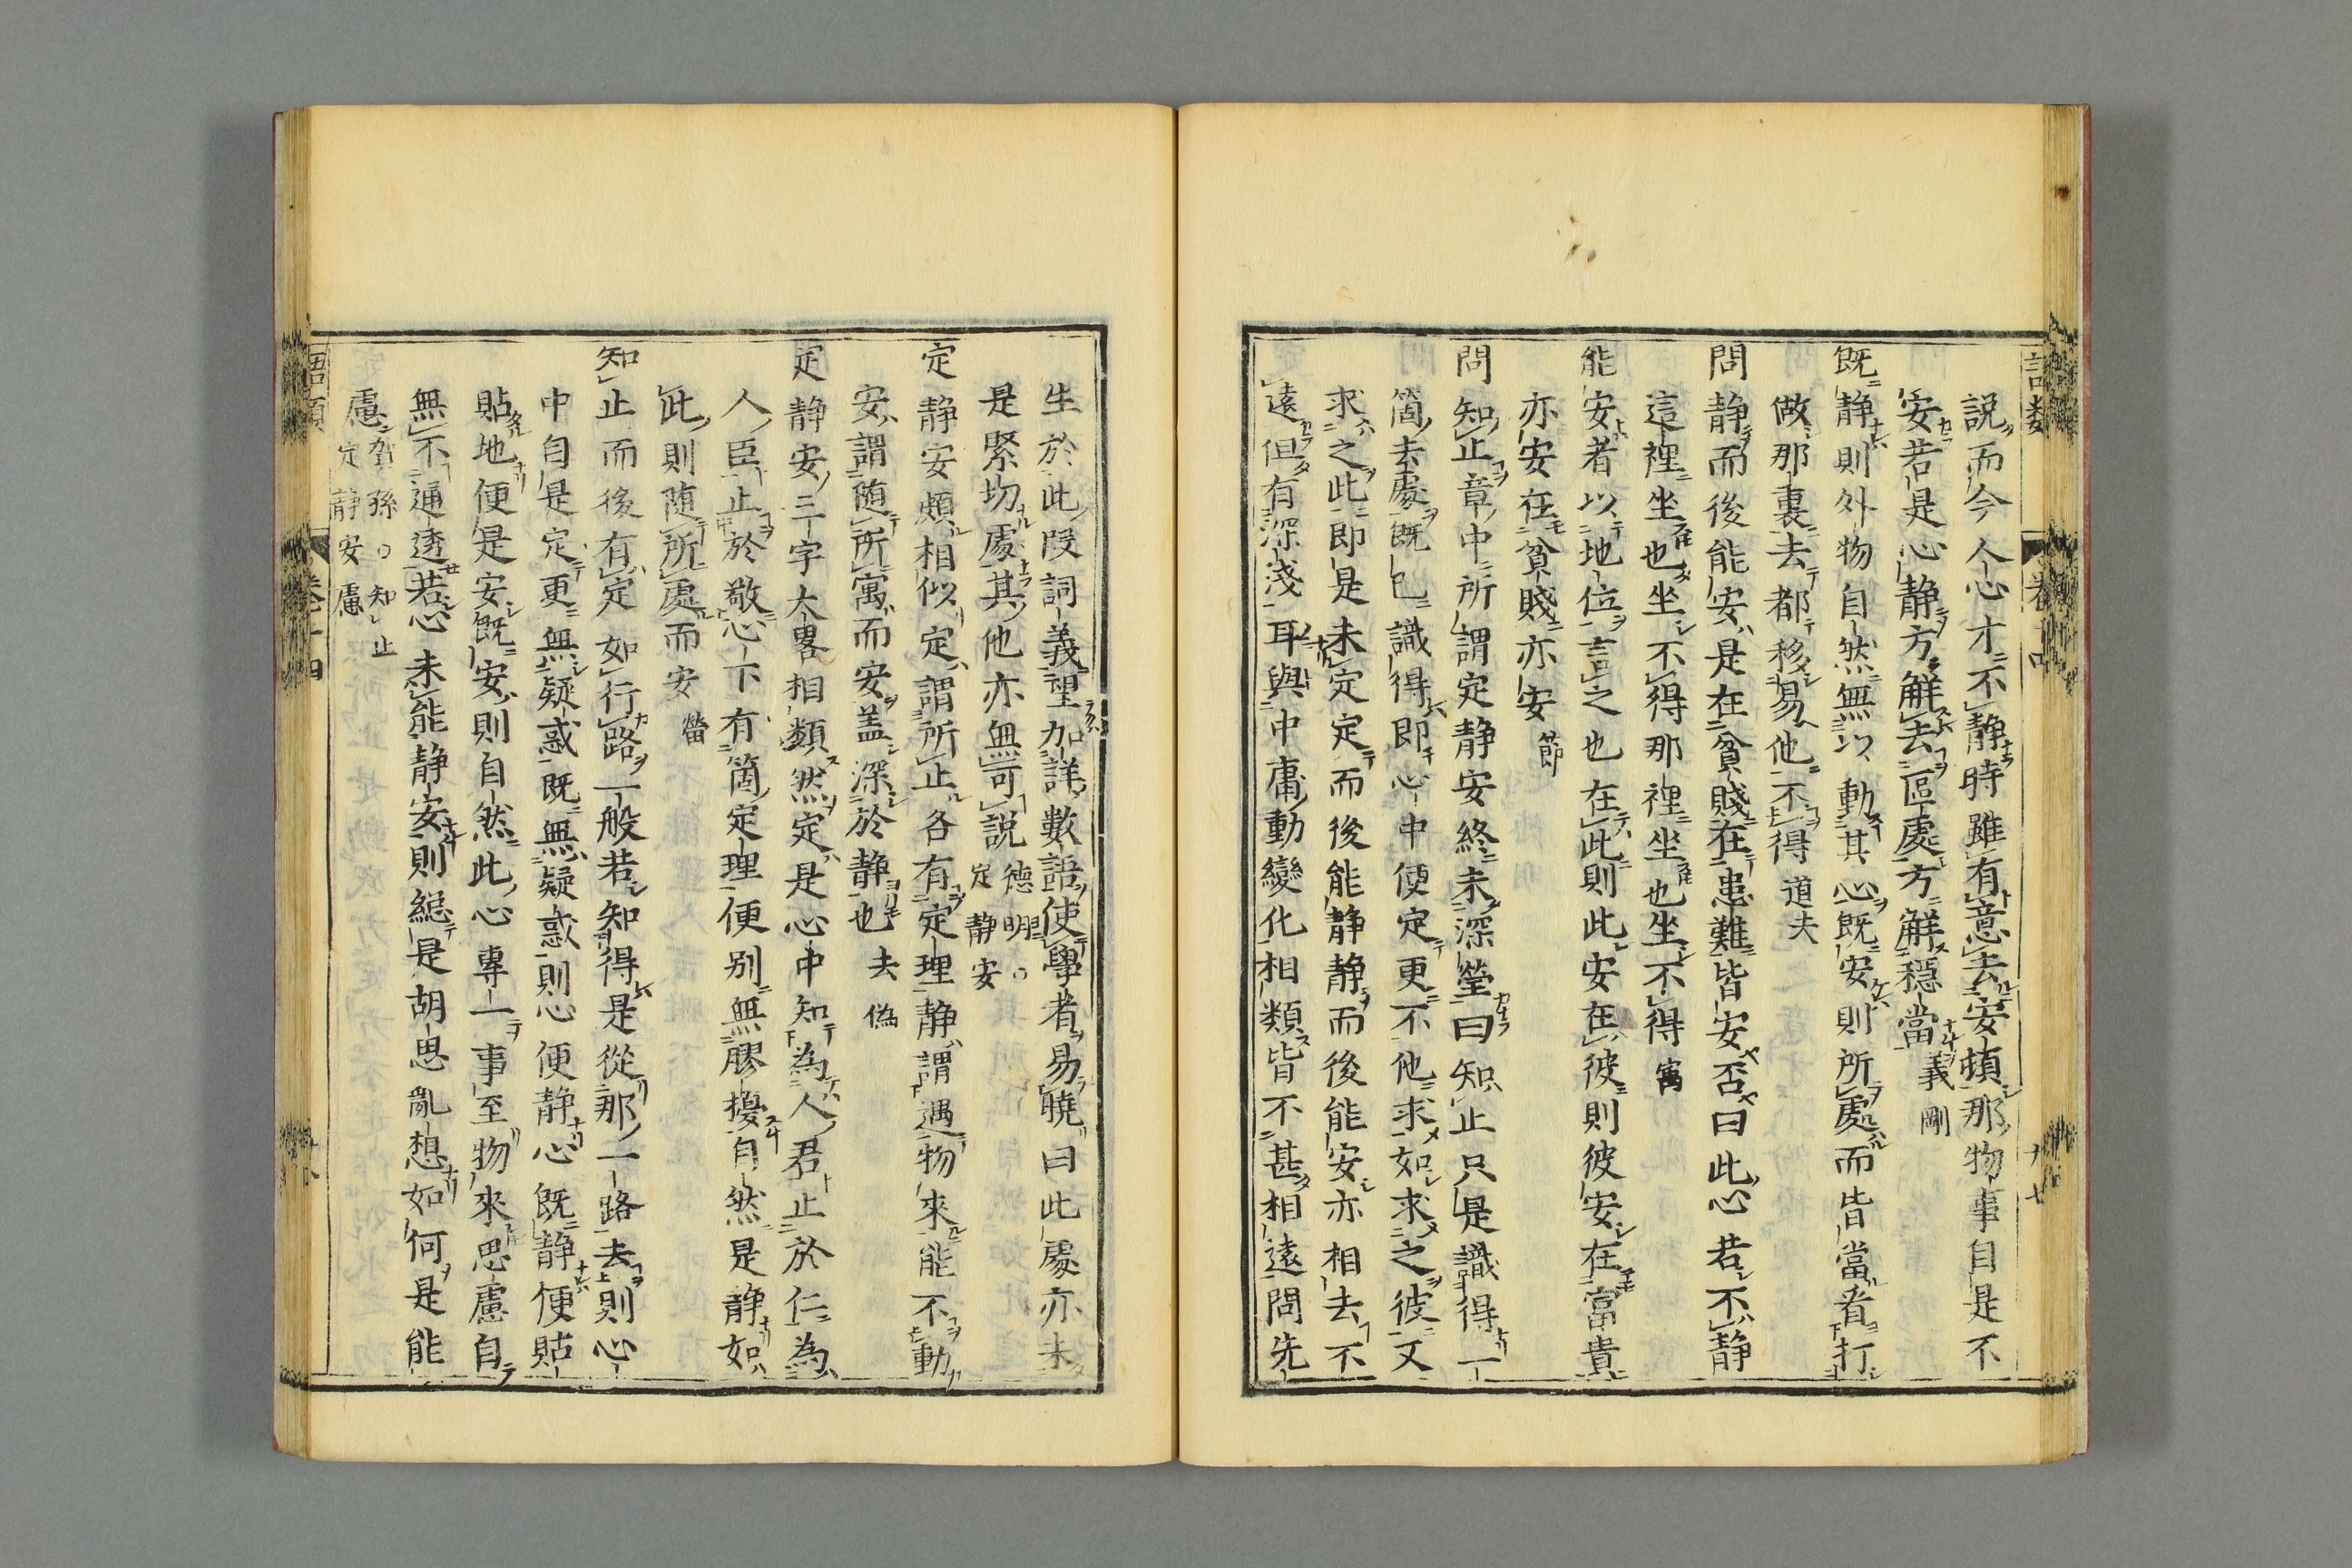 語類 卷十四 十七
說而今人心才不静時雖有意去安頓那物事自是不
安若是心静方解去區處方解穩當義剛
既静則外物自然無以動其心既安則所處而皆當看打
做那裏去都移易他不得道夫
問静而後能安是在貧賤在患難皆安否曰此心若不静
這裡坐也坐不得那裡坐也坐不得寓
能安者以地位言之也在此則此安在彼則彼安在富貴
亦安在貧賤亦安節
問知止章中所謂定静安終未深瑩曰知止只是識得一
箇去處既已識得即心中便定更不他求如求之彼又
求之此即是未定定而後能静静而後能安亦相去不
遠但有深淺耳與中庸動變化相類皆不甚相遠問先
生於此段詞義望加詳數語使學者易曉曰此處亦未
是緊切處其他亦無可說德明〇定静安
定静安頗相似定謂所止各有定理静謂遇物來能不動
安謂随所寓而安盖深於静也去偽
定静安三字大畧相類然定是心中知為人君止於仁為
人臣止於敬心下有箇定理便别無膠擾自然是静如
此則随所處而安㽦
知止而後有定如行路一般若知得是從那一路去則心
中自是定更無疑惑既無疑惑則心便静心既静便貼
貼地便是安既安則自然此心專一事至物來思慮自
無不通透若心未能静安則緫是胡思亂想如何是能
慮賀孫〇知止定静安慮
語類 卷十四 十八